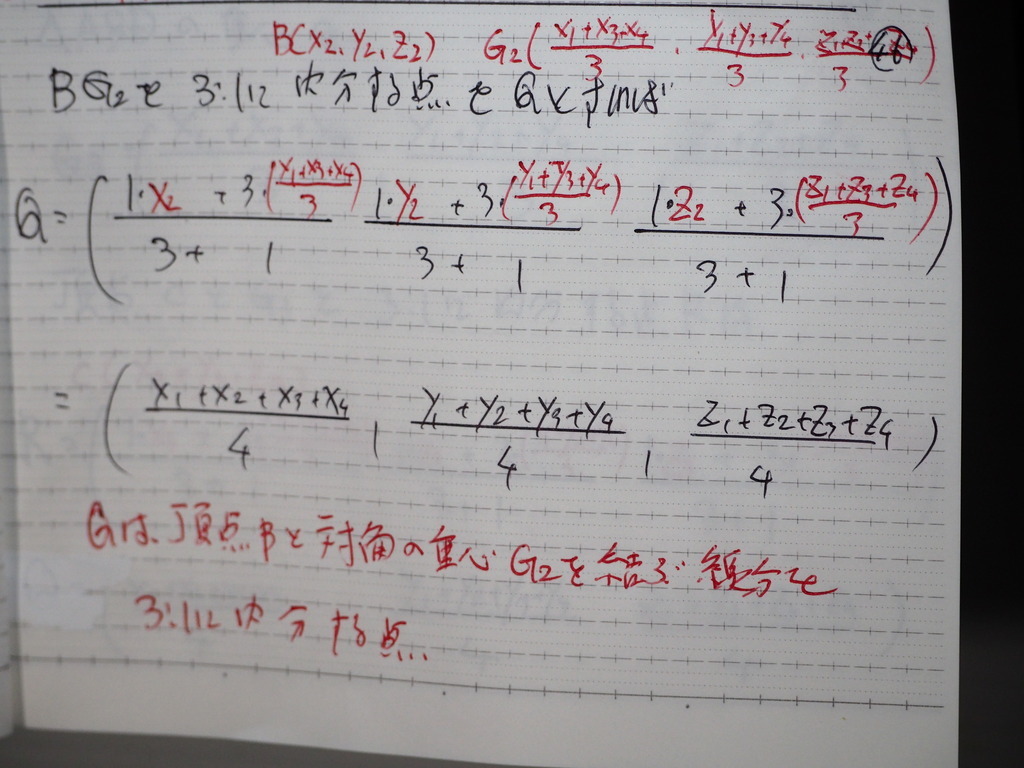 B(x2, y2, z2) G2((x1+x3+x4)/3, (y1+y3+y4)/3, (z1+z3+z4)/3)
BG2を3:1に内分する点をQとすれば
Q = ((1・x2 + 3・((x1+x3+x4)/3))/(3+1) (1・y2 + 3・((y1+y3+y4)/3))/(3+1) (1・z2 + 3・((z1+z3+z4)/3))/(3+1))
= ((x1+x2+x3+x4)/4, (y1+y2+y3+y4)/4, (z1+z2+z3+z4)/4)
Qは、頂点Bと対角の重心G2を結ぶ線分を
3:1に内分する点